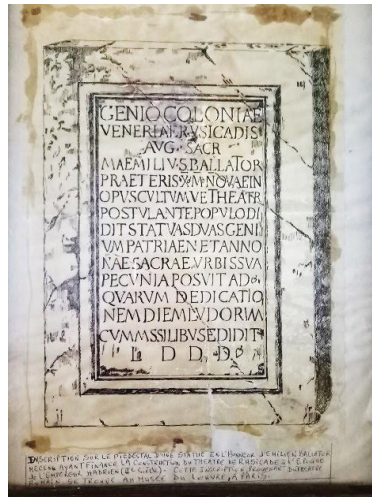 GENIO COLONIAE
VENERIAE RVSICADIS
AVG · SACR
M AEMILIVS BALLATOR
PRAETER IS X̅ M NOVAE IN
OPVS CVLTVMVE THEATR
POSTVLANTE POPVLO DI
DIT STATVAS DVAS GENI
VM PATRIAE N ET ANNO
NAE SACRAE VRBIS SVA
PECVNIA POSVIT AD
QVARVM DEDICATIO
NEM DIEM LVDORVM
CVM MSSILIBVS EDIDIT
L D D D
INSCRIPTION SUR LE PIEDESTAL D'UNE STATUE EN L'HONNEUR D'EMILIEN BALLATOR
MECENE AYANT FINANCE LA CONSTRUCTION DU THEATRE DE RUSICADE A L'EPOQUE
DE L'EMPEREUR HADRIEN (2e SIECLE). CETTE INSCRIPTION PROVENANT DU THEATRE
SE TROUVE AU MUSEE DU LOUVRE A PARIS.